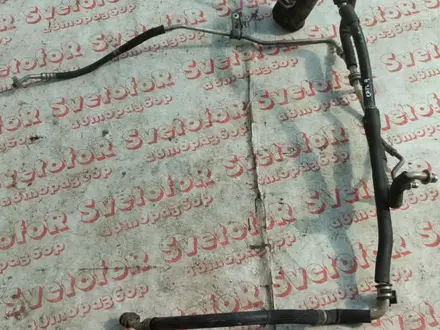 SvetofoR
авторазбор
SvetofoR
авторазбор
SvetofoR
авторазбор
SvetofoR
авторазбор
SvetofoR
авторазбор
SvetofoR
авторазбор
SvetofoR
авторазбор
SvetofoR
авторазбор
SvetofoR
авторазбор
SvetofoR
авторазбор